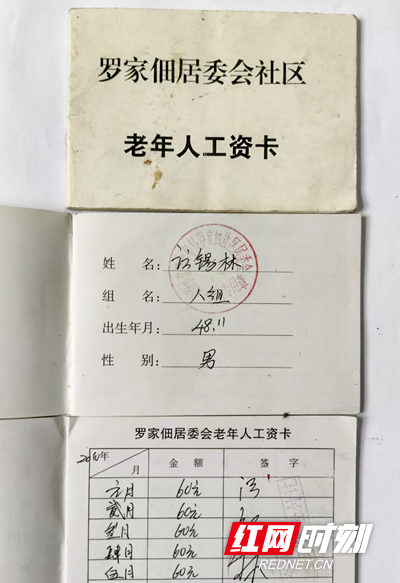 罗家佃居委会社区
老年人工资卡
姓 名：
锡林
组 名：
八组
出生年月：
48.11
性 别：
男
罗家佃居委会老年人工资卡
年
月
金 额
签 字
元月
60元
贰月
60元
叁月
60元
肆月
60元
伍月
60元
红网时刻
REDNET.CN